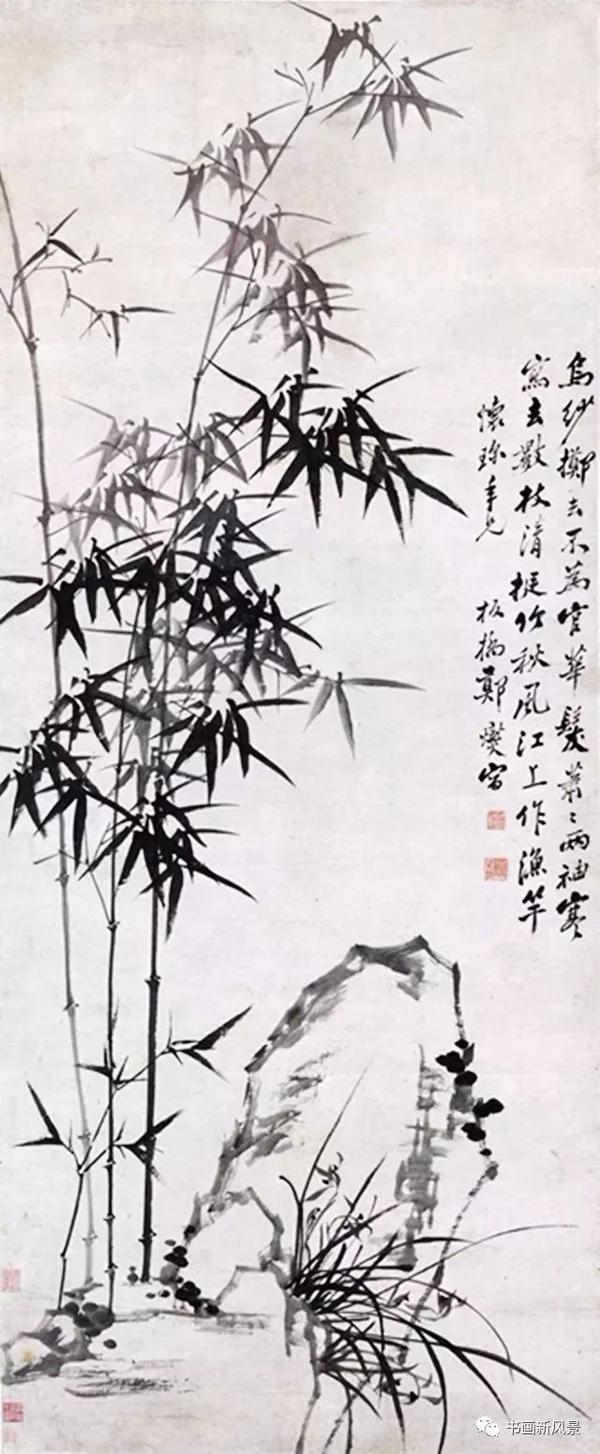 烏紗擲去不為官華髮蕭〻兩袖寒
寫去數枝清挺竹秋風江上作漁竿
懷珎年兄 板橋鄭燮寫
书画新风景